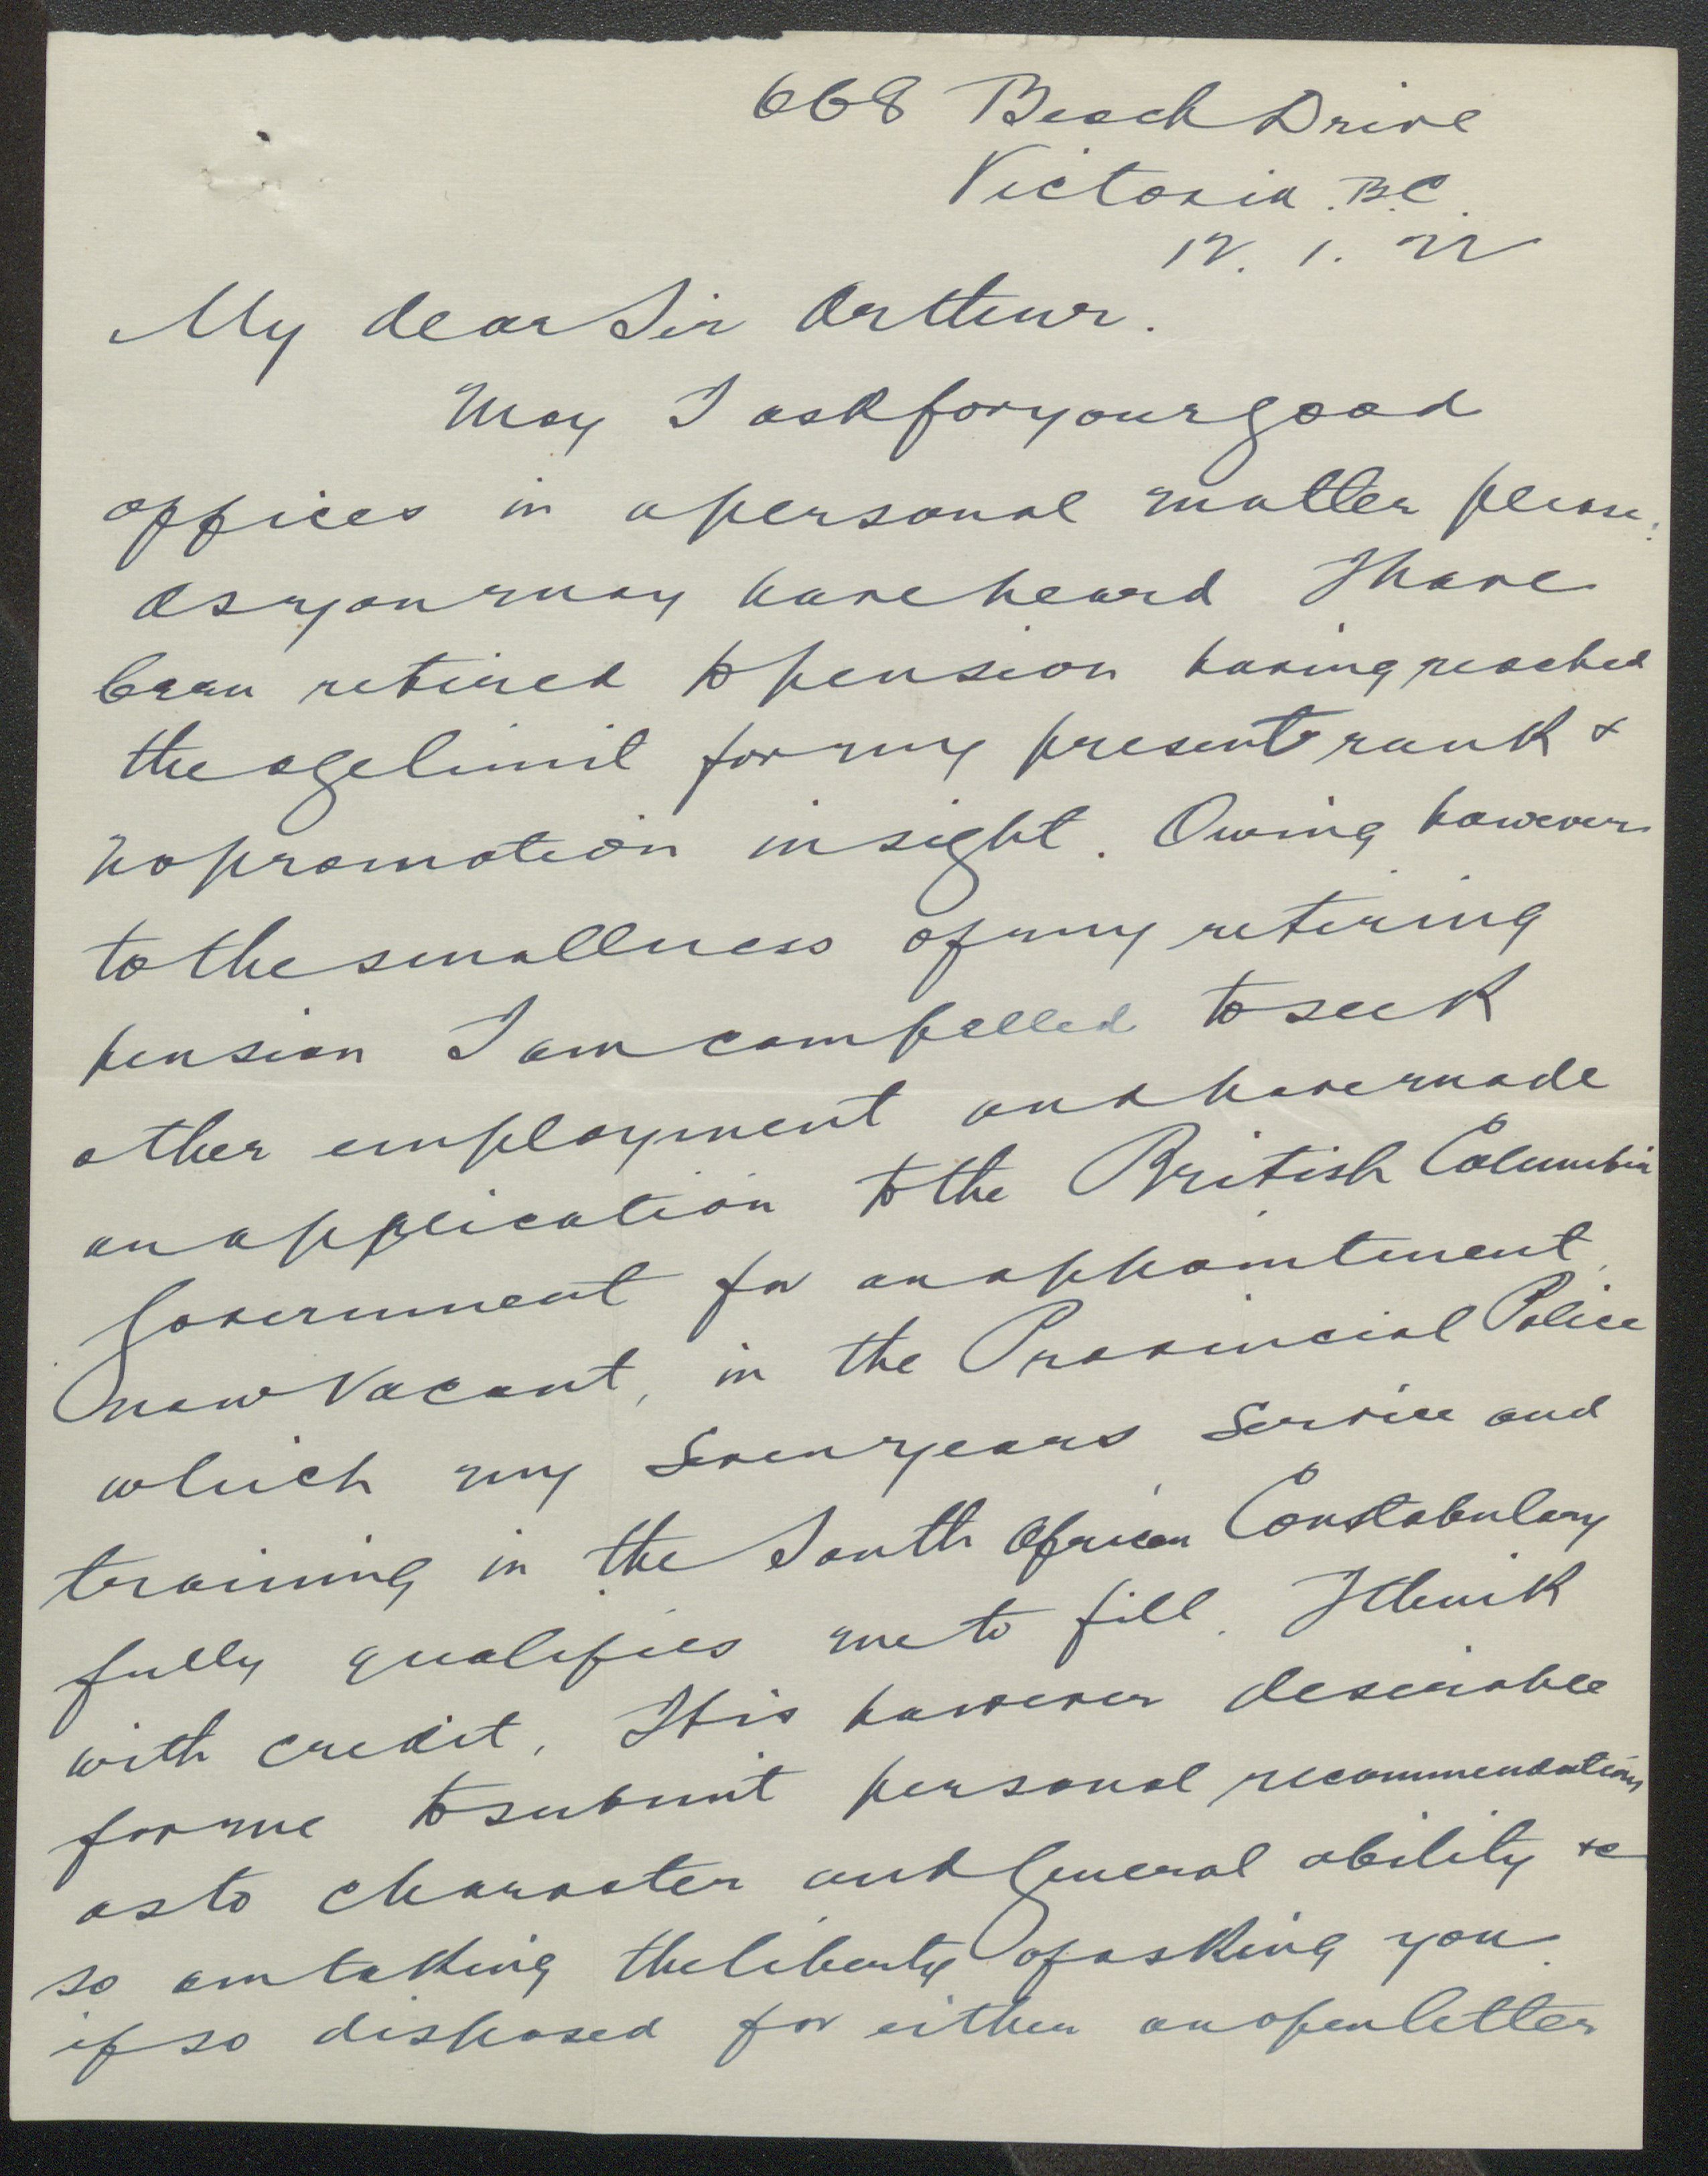 668 Beach Drive
Victoria. B.C.
12. 1. 22
My dear Sir Arthur.
May I ask for your good
offices in a personal matter please.
As you may have heard I have
been retired to pension having reached
the age limit for my present rank &
no promotion in sight. Owing however
to the smallness of my retiring
pension I am compelled to seek
other employment and have made
an application to the British Columbia
Government for an appointment,
now vacant, in the Provincial Police
which my seven years service and
training in the South African Constabulary
fully qualifies me to fill. I think
with credit. It is however desirable
for me to submit personal recommendations
as to character and general ability &c
so am taking the liberty of asking you
if so disposed for either an open letter